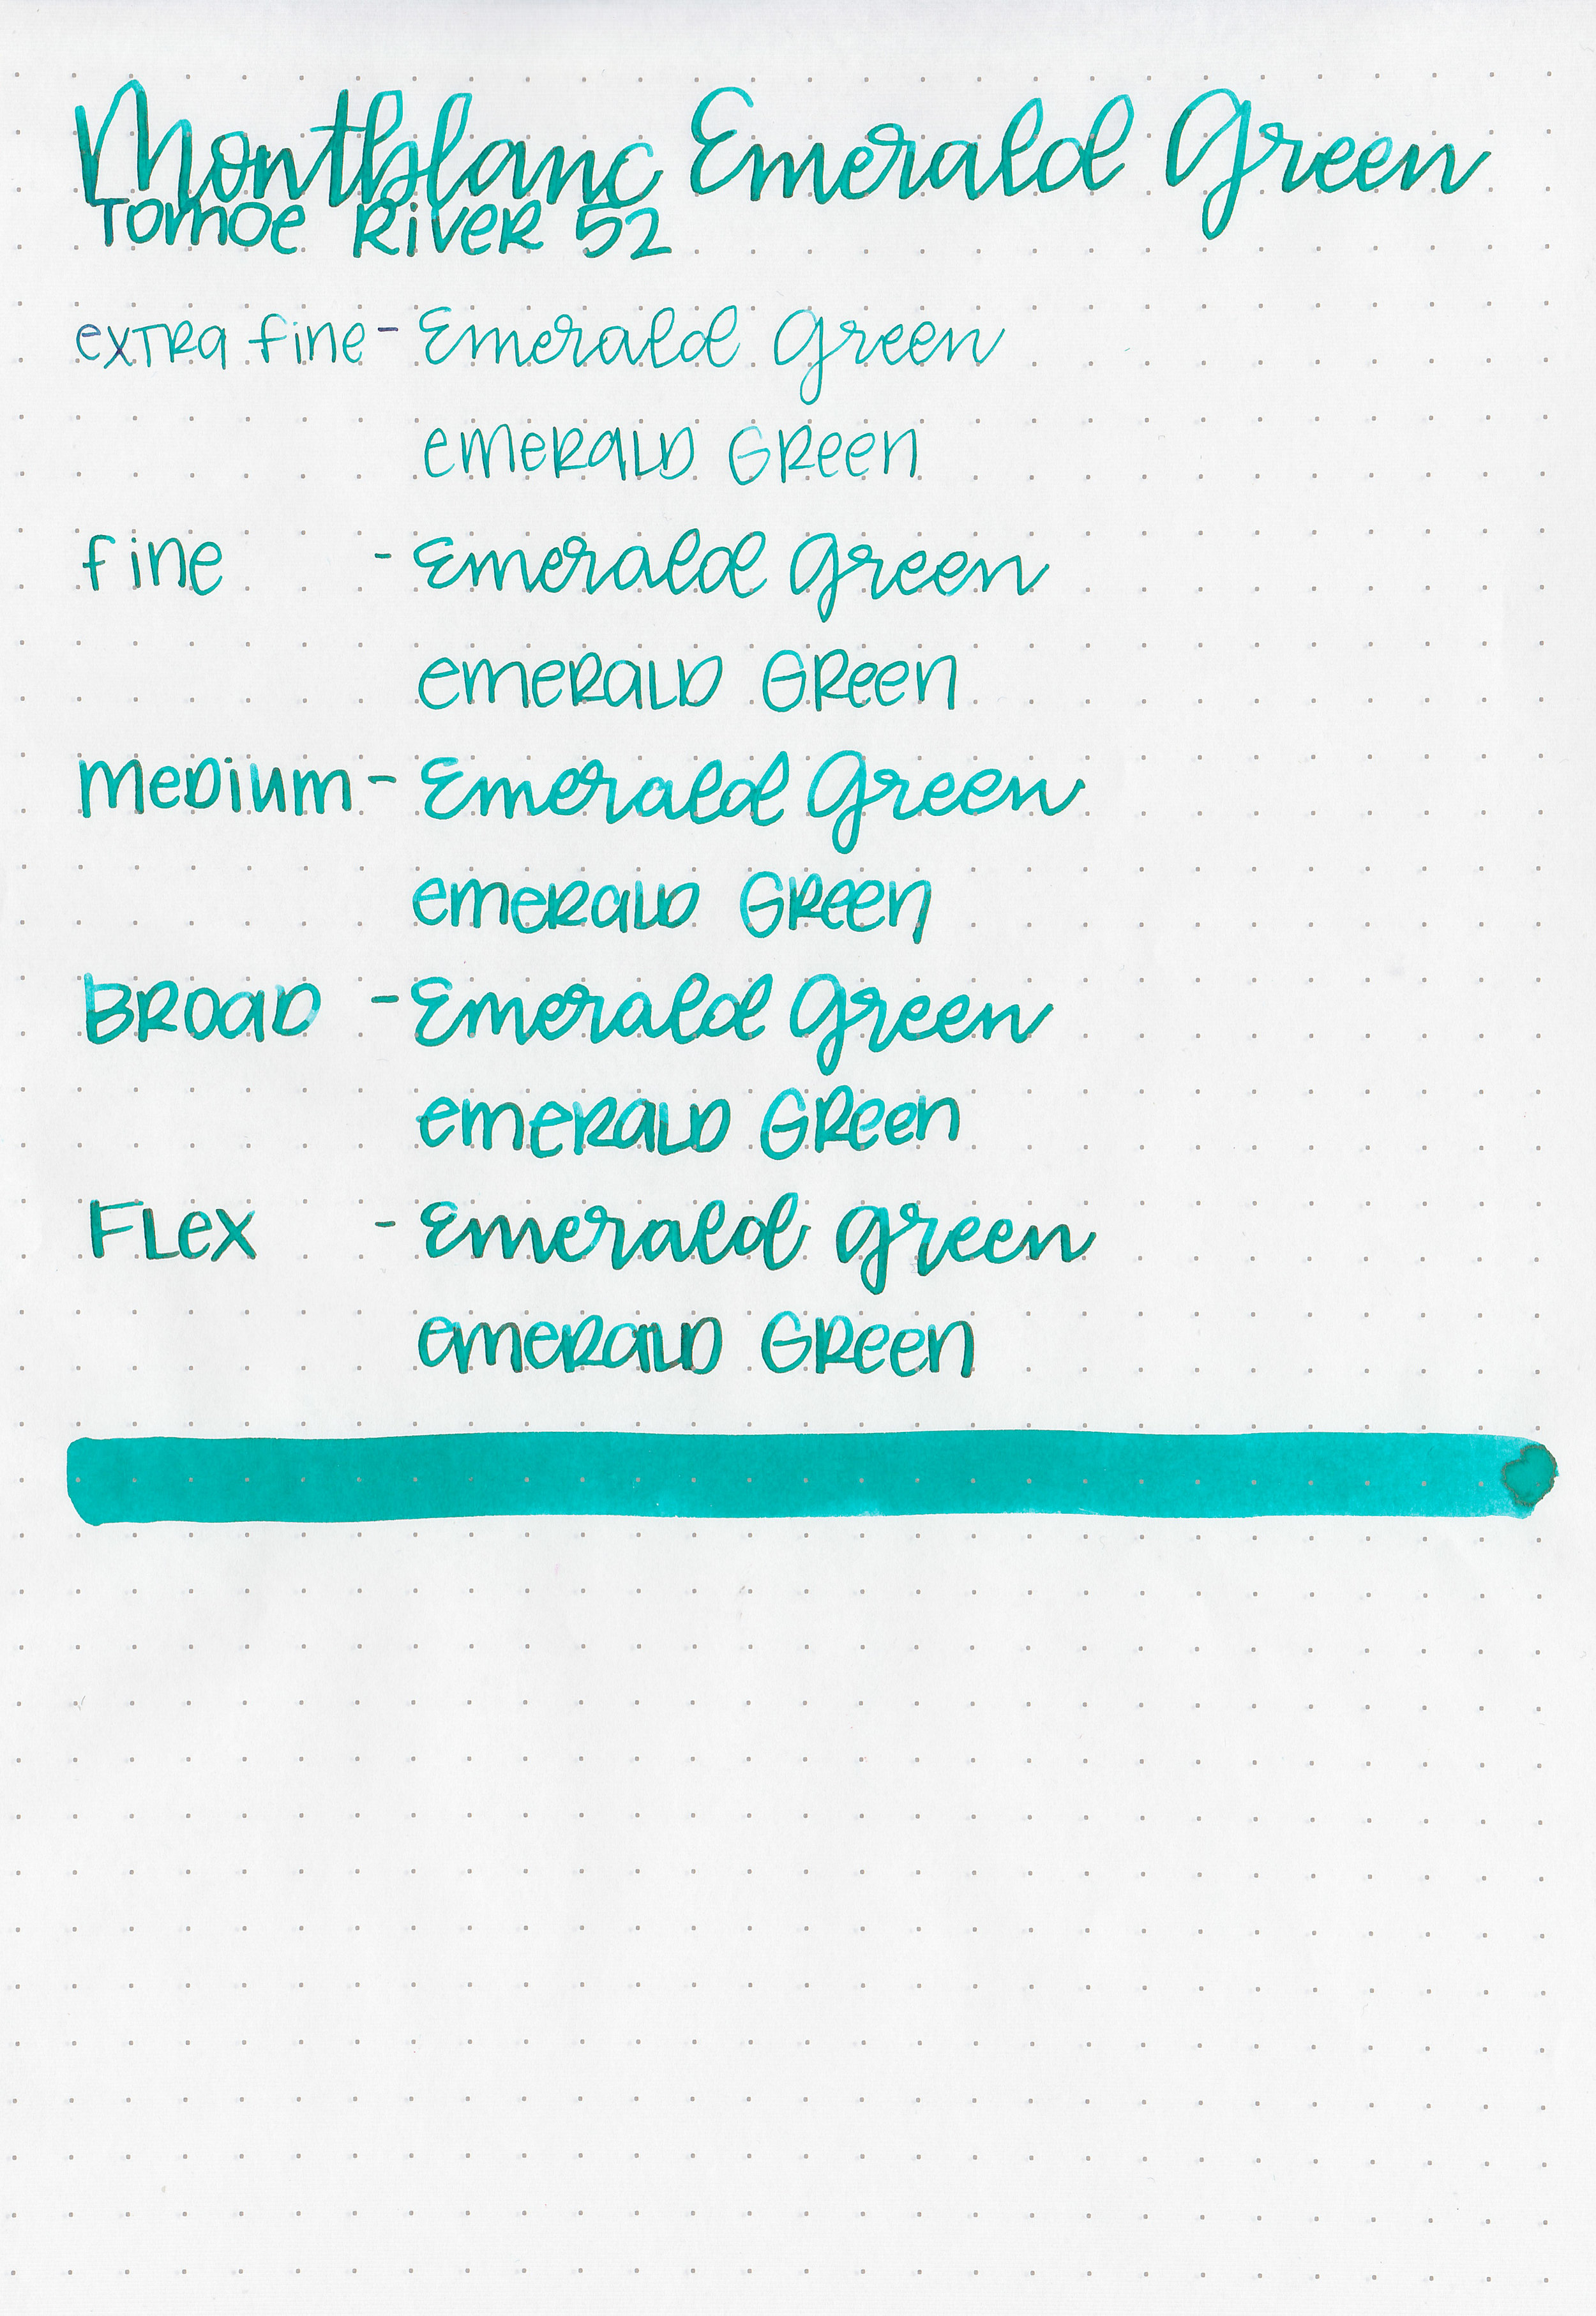 Montblanc Emerald Green
Tomoe River 52
extra fine - Emerald Green
emerald Green
fine - Emerald Green
emerald Green
medium - Emerald Green
emerald Green
Broad - Emerald Green
emerald Green
Flex - Emerald Green
emerald Green